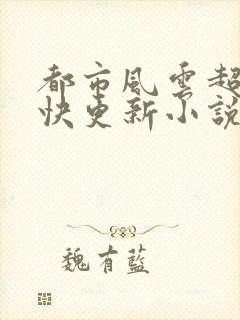 都市風雲超
快更新小說
魏有藍